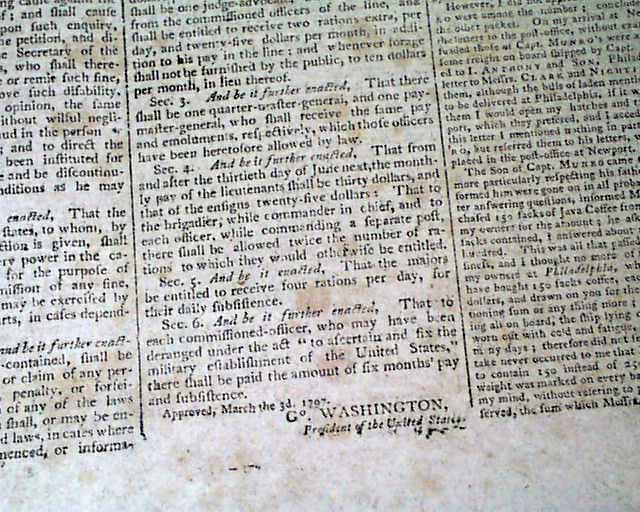 upon such enquiry,
the petition, and di-
Secretary of the
, who shall there-
or remit such fine,
ove such disability,
opinion, the same
without wilful negli-
ud in the person
and to direct the
been instituted for
e and be discontinu-
nditions as he may
enacted, That the
states, to whom, by
ction is given, shall
ry power in the ca-
for the purpose of
mission of any fine,
may be exercised by
rts, in cases depend-
and be it further enact-
-contained, shall be
or claim of any per-
penalty, or forfei-
of any of the laws
shall, or may be en-
d laws, in cases where
menced, or informa-
shall be one judge-advocate,
from the commissioned officers of the line, and
shall be entitled to receive two rations extra, per
day, and twenty-five dollars per month, in addi-
tion to his pay in the line; and whenever forage
shall not be furnished by the public, to ten dollars
per month, in lieu thereof.
Sec. 3. And be it further enacted, That there
shall be one quarter-master-general, and one pay-
master-general, who shall receive the same pay
and emoluments, respectively, which those officers
have been heretofore allowed by law.
Sec. 4. And be it further enacted, That from
and after the thirtieth day of June next, the month-
ly pay of the lieutenants shall be thirty dollars, and
that of the ensigns twenty-five dollars: That to
the brigadier, while commander in chief, and to
each officer, while commanding a separate post,
there shall be allowed twice the number of ra-
tions to which they would otherwise be entitled.
Sec. 5. And be it enacted, That the majors
be entitled to receive four rations per day, for
their daily subsistence.
Sec. 6. And be it further enacted, That to
each commissioned-officer, who may have been
deranged under the act "to ascertain and fix the
military establishment of the United States,"
there shall be paid the amount of six months' pay
and subsistence.
Approved, March the 3d, 1797.
Go. WASHINGTON,
President of the United States.
However, I did not
were among the number;
the other packet. On my arrival at
the letters to the post-office, without
funded those at Capt. MUNRO's were
come freight on board shipped by Capt.
ed to I. ANTHONY and SON, Philad
letter to Messrs. CLARK and NIGHT
them, although the bills of laden men
to be delivered at Philadelphia, if it
them I would open my hatches and
port, which they preferred, and I accor
this letter I mentioned nothing in pa
but referred them to his letters, pa
placed in the post-office at Newport,
The Son of Capt. MUNRO came
more particularly respecting his fath
formed him were gone on in all prob
ter answering questions, informed M
chased 150 sacks of Java Coffee from
my owners for the amount: he as
sacks contained, I answered about
hundred. This was all that passed
since, and I thought no more
my owners at Philadelphia,
have bought 150 sacks coffee, wh
dollars, and drawn on you for the
tioning sum or any thing more
ing all on board; the ship lying
worn out with cold and fatigue,
ny days; therefore did not
take never occurred to me that
to contain 150 instead of 25
weight was marked on every ba
my mind, without referring to
served, the sum which Messrs.